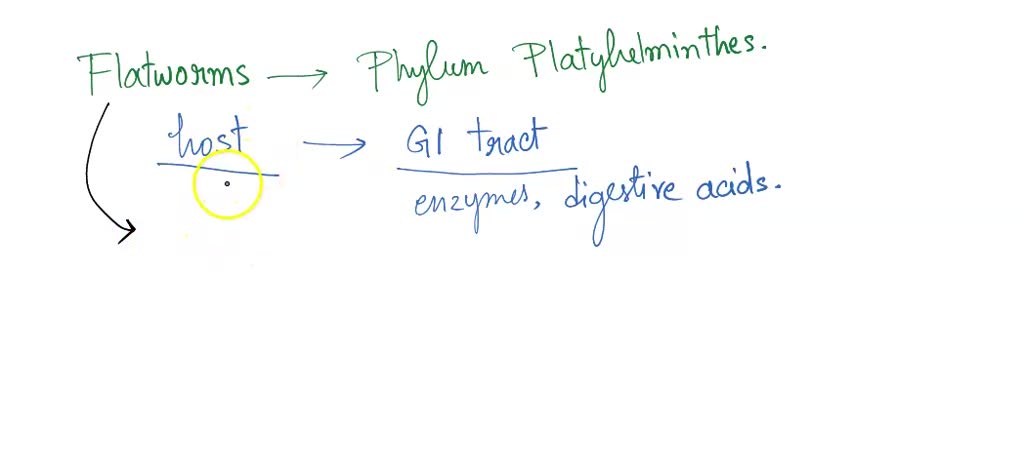 Flatworms → Phylum Platyhelminthes.
host → GI tract
enzymes, digestive acids.